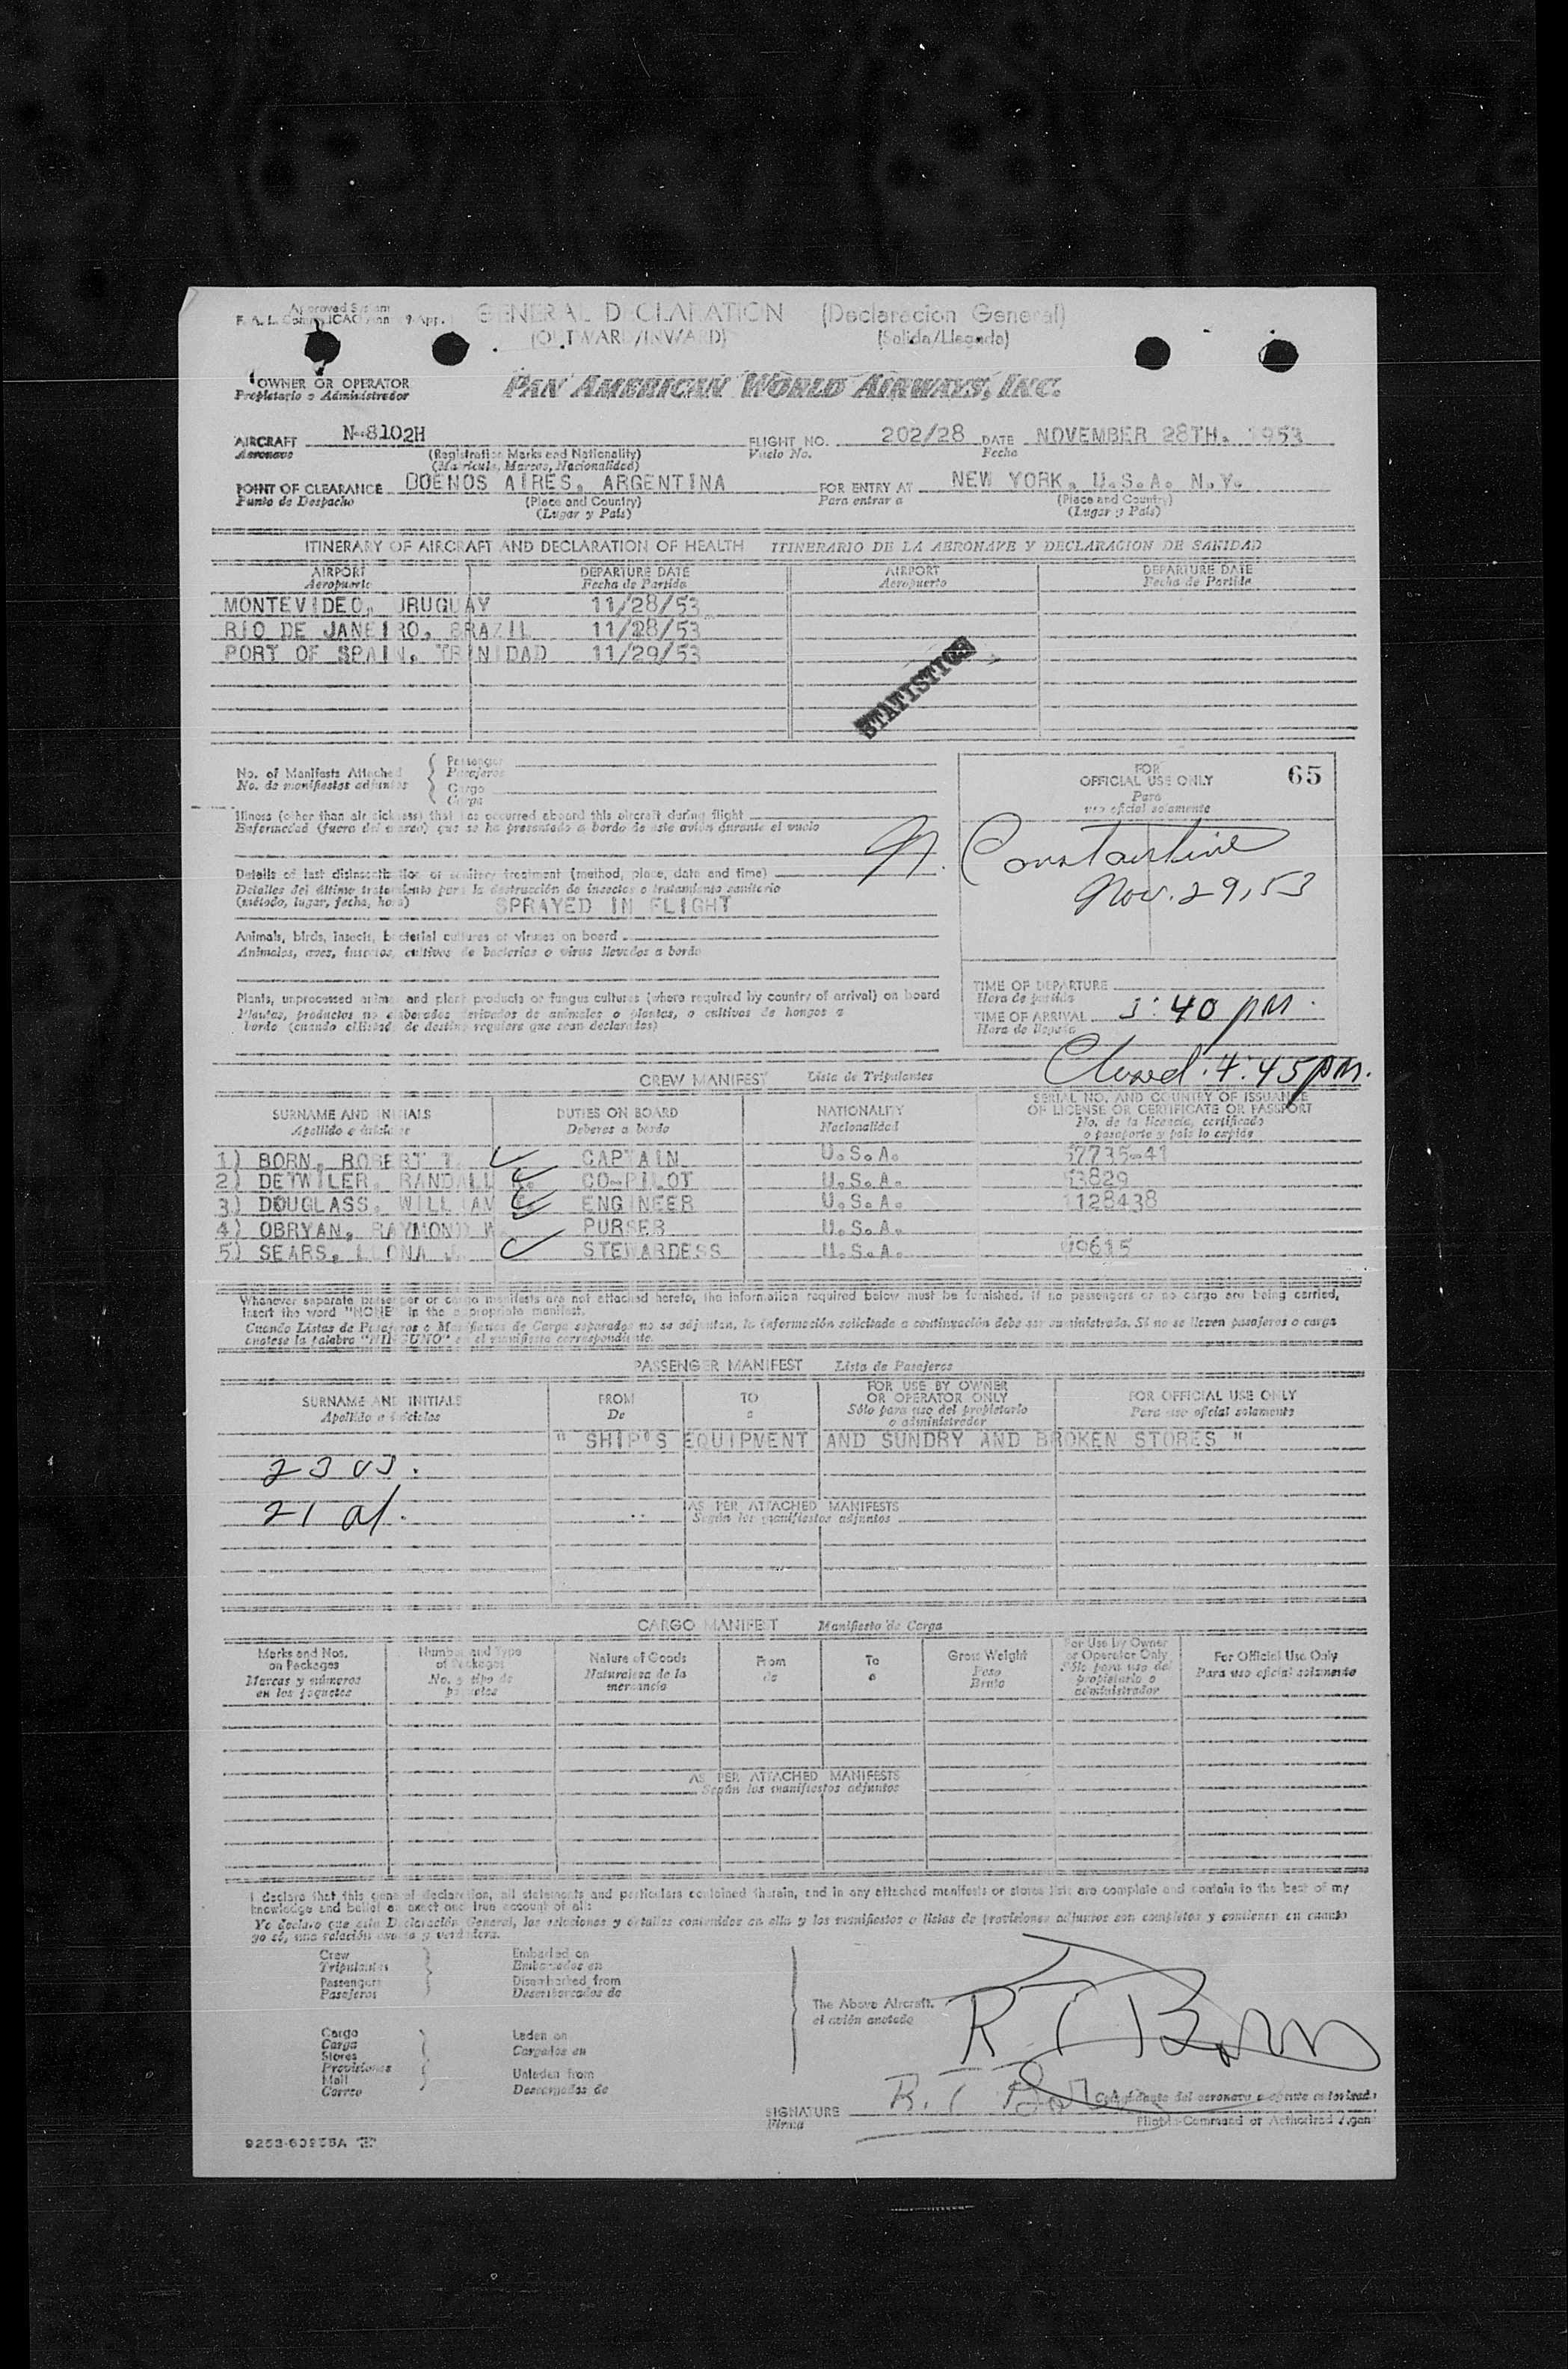 Approved System
GENERAL DECLARATION (Declaracion General)
(OUTWARD/INWARD) (Salida/Llegada)
OWNER OR OPERATOR PAN AMERICAN WORLD AIRWAYS, INC.
Propietario o Administrador
AIRCRAFT N-8102H FLIGHT NO. 202/28 DATE NOVEMBER 28TH, 1953
Aeronave (Registration Marks and Nationality) Vuelo No. Fecha
(Matricula, Marcas, Nacionalidad)
POINT OF CLEARANCE BUENOS AIRES, ARGENTINA FOR ENTRY AT NEW YORK, U.S.A. N.Y.
Punto de Despacho (Place and Country) Para entrar a (Place and Country)
(Lugar y País) (Lugar y País)
ITINERARY OF AIRCRAFT AND DECLARATION OF HEALTH ITINERARIO DE LA AERONAVE Y DECLARACION DE SANIDAD
AIRPORT DEPARTURE DATE AIRPORT DEPARTURE DATE
Aeropuerto Fecha de Partida Aeropuerto Fecha de Partida
MONTEVIDEO, URUGUAY 11/28/53
RIO DE JANEIRO, BRAZIL 11/28/53
PORT OF SPAIN, TRINIDAD 11/29/53
STATISTICS
No. of Manifests Attached Passenger
No. de manifiestos adjuntos Pasajeros
Cargo
Carga
FOR
OFFICIAL USE ONLY 65
Para
uso oficial solamente
Illness (other than air sickness) that has occurred aboard this aircraft during flight
Enfermedad (fuera del mareo) que se ha presentado a bordo de este avión durante el vuelo
N. Constantine
Nov. 29, 53
Details of last disinsectization or sanitary treatment (method, place, date and time)
Detalles del último tratamiento para la destrucción de insectos o tratamiento sanitario
(método, lugar, fecha, hora) SPRAYED IN FLIGHT
Animals, birds, insects, bacterial cultures or viruses on board
Animales, aves, insectos, cultivos de bacterias o virus llevados a bordo
Plants, unprocessed animal and plant products or fungus cultures (where required by country of arrival) on board
Plantas, productos no elaborados derivados de animales o plantas, o cultivos de hongos a
bordo (cuando el Estado de destino requiere que sean declarados)
TIME OF DEPARTURE
Hora de partida
TIME OF ARRIVAL 3:40 pm.
Hora de llegada
Closed. 4:45 pm.
CREW MANIFEST Lista de Tripulantes
SURNAME AND INITIALS DUTIES ON BOARD NATIONALITY SERIAL NO. AND COUNTRY OF ISSUANCE
OF LICENSE OR CERTIFICATE OR PASSPORT
Apellido e iniciales Deberes a bordo Nacionalidad No. de la licencia, certificado
o pasaporte y país lo expide
1) BORN, ROBERT T. CAPTAIN U.S.A. 57735-41
2) DETWILER, RANDALL CO-PILOT U.S.A.
3) DOUGLASS, WILLIAM ENGINEER U.S.A. 1128438
4) OBRYAN, RAYMOND W. PURSER U.S.A.
5) SEARS, STEWARDESS U.S.A.
Whenever separate passenger or cargo manifests are not attached hereto, the information required below must be furnished. If no passengers or no cargo are being carried,
insert the word "NONE" in the appropriate manifest.
Cuando Listas de Pasajeros o Manifiestos de Carga separados no se adjuntan, la información solicitada a continuación debe ser suministrada. Si no se llevan pasajeros o carga
anótese la palabra "NINGUNO" en el manifiesto correspondiente.
PASSENGER MANIFEST Lista de Pasajeros
SURNAME AND INITIALS FROM TO FOR USE BY OWNER
OR OPERATOR ONLY FOR OFFICIAL USE ONLY
Apellido e iniciales De a Sólo para uso del propietario
o administrador Para uso oficial solamente
" SHIP'S EQUIPMENT AND SUNDRY AND BROKEN STORES "
23 US.
21 al.
AS PER ATTACHED MANIFESTS
Según los manifiestos adjuntos
CARGO MANIFEST Manifiesto de Carga
Marks and Nos.
on Packages
Marcas y números
en los paquetes
Number and Type
of Packages
No. y tipo de
paquetes
Nature of Goods
Naturaleza de la
mercancía
From
de
To
a
Gross Weight
Peso
Bruto
For Use by Owner
or Operator Only
Sólo para uso del
propietario o
administrador
For Official Use Only
Para uso oficial solamente
AS PER ATTACHED MANIFESTS
Según los manifiestos adjuntos
I declare that this general declaration, all statements and particulars contained therein, and in any attached manifests or stores lists are complete and contain to the best of my
knowledge and belief an exact and true account of all:
Yo declaro que esta Declaración General, las relaciones y detalles contenidos en ella y los manifiestos o listas de provisiones adjuntos son completos y contienen en cuanto
yo sé, una relación exacta y verdadera.
Crew Embarked on
Tripulantes Embarcados en
Passengers Disembarked from
Pasajeros Desembarcados de
The Above Aircraft.
el avión anotado
R T Born
Cargo Laden on
Carga Cargados en
Stores
Provisiones Unladen from
Mail Descargados de
Correo
SIGNATURE R. T. Born
Firma
Comandante del aeronave o agente autorizado
Pilot-in-Command or Authorized Agent
9253-60955A